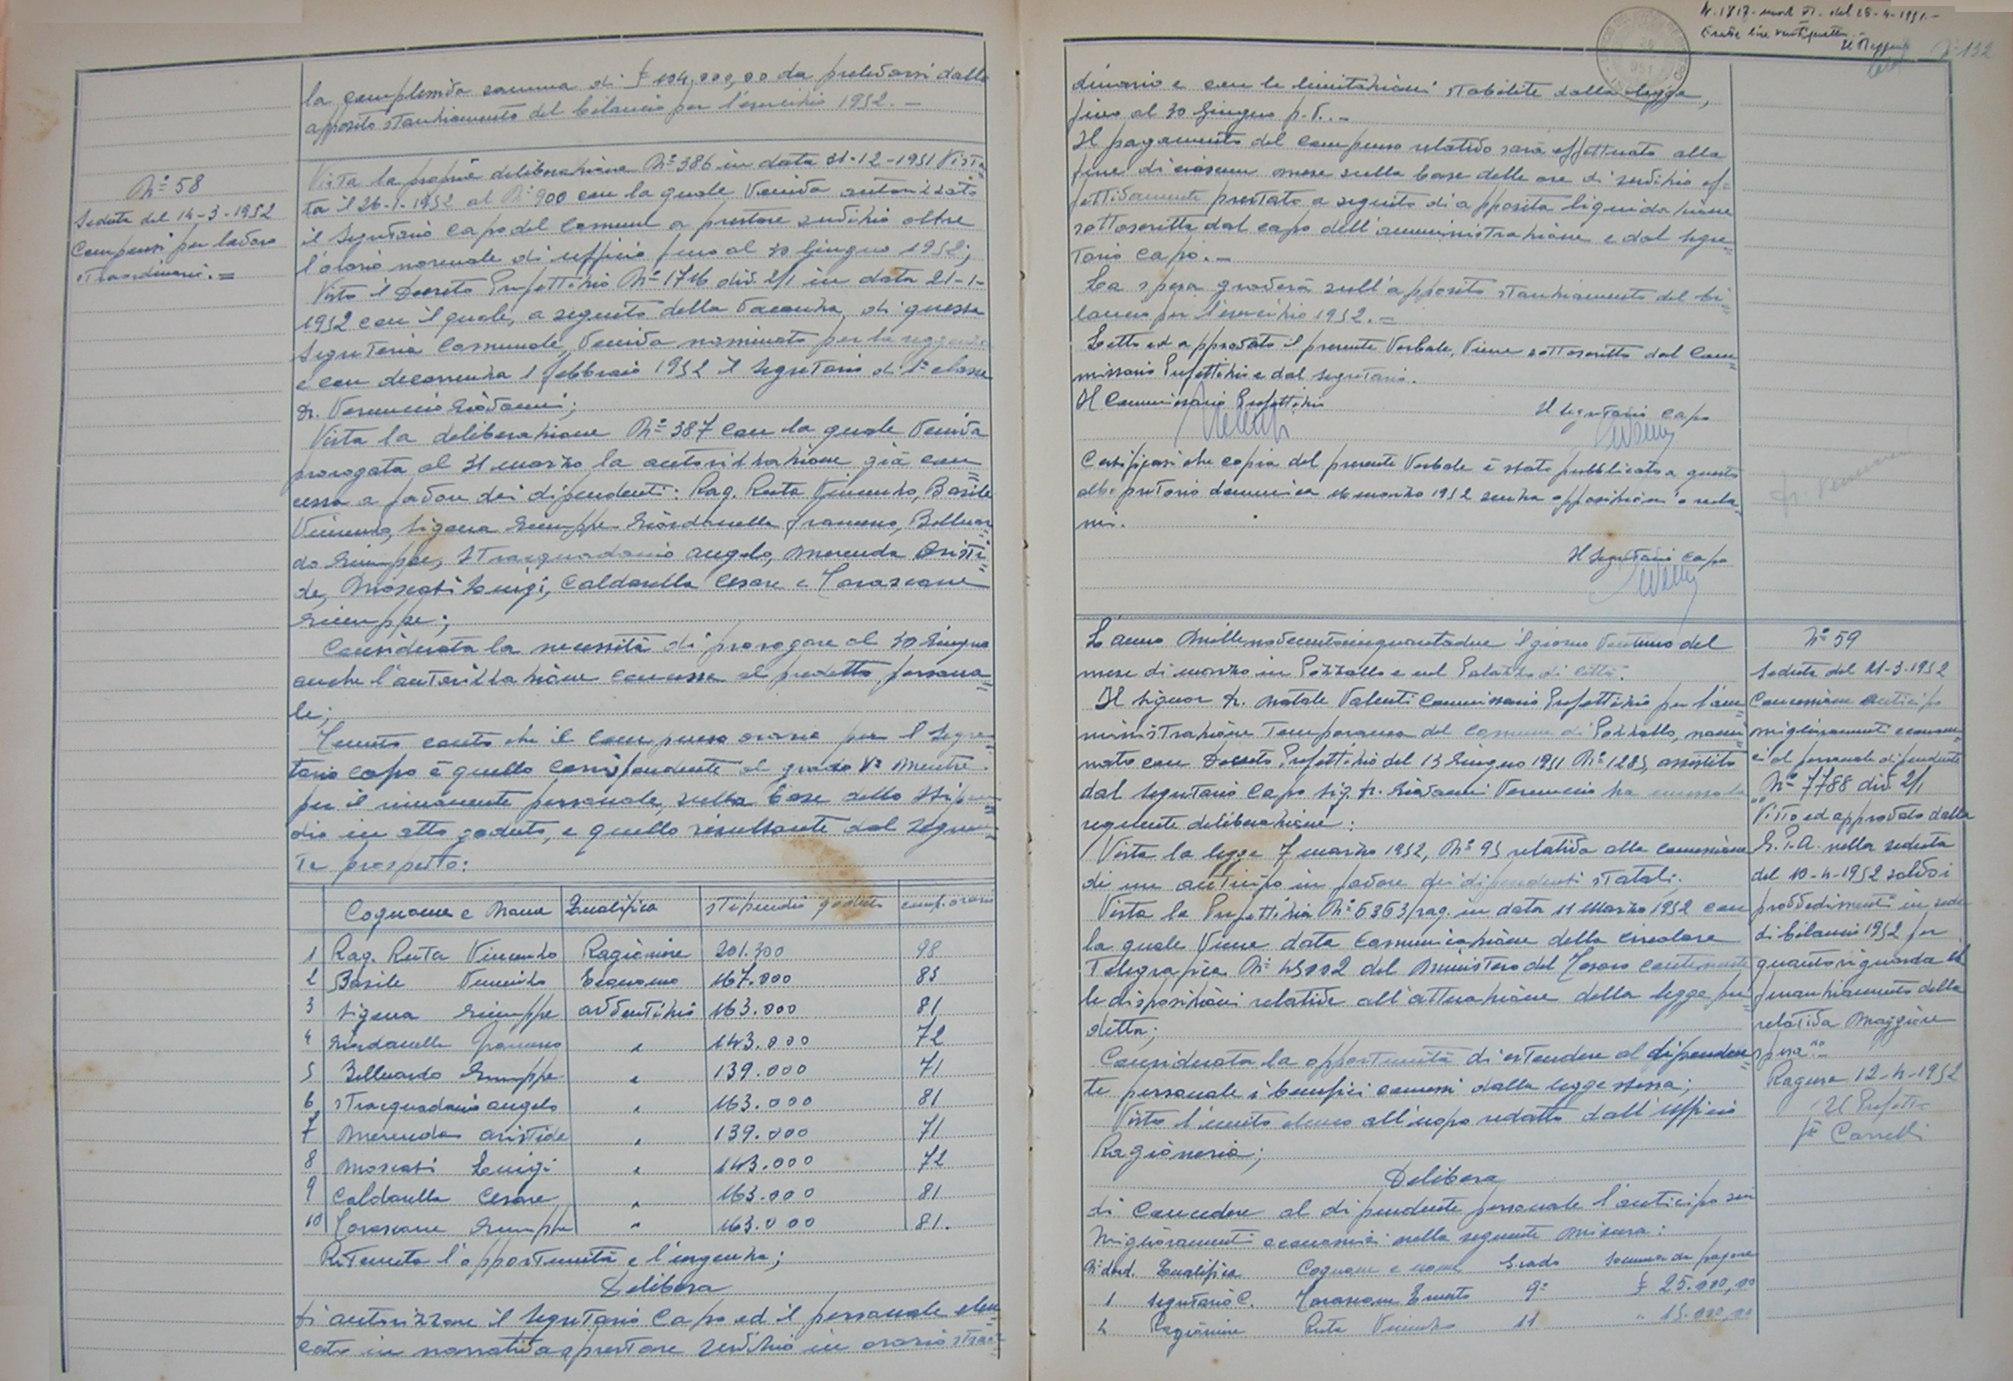 la complessiva somma di £ 104.000,00 da prelevarsi dallo
apposito stanziamento del bilancio per l'esercizio 1952. =
N° 58
Seduta del 14-3-1952
Compensi per lavoro
straordinario. =
Vista la propria deliberazione N° 386 in data 31-12-1951 Vista
ta il 26-1-1952 al N° 900 con la quale veniva autorizzato
il Segretario Capo del Comune a prestare servizio oltre
l'orario normale di ufficio fino al 30 Giugno 1952;
Visto il Decreto Prefettizio N° 1746 div. 2/1 in data 21-1-
1952 con il quale, a seguito della vacanza di questa
Segreteria Comunale, veniva nominato per la reggenza
e con decorrenza 1 febbraio 1952 il Segretario di 1ª classe
Dr. Vernuccio Giovanni;
Vista la deliberazione N° 387 con la quale veniva
prorogata al 31 marzo la autorizzazione già con=
cessa a favore dei dipendenti: Rag. Ruta Vincenzo, Basile
Vincenzo, Sigona Giuseppe, Giordanella Francesco, Belluar=
do Giuseppe, Stracquadanio Angelo, Merenda Aristi=
de, Moscati Luigi, Caldarella Cesare e Torascone
Giuseppe;
Considerata la necessità di prorogare al 30 Giugno
anche l'autorizzazione concessa al predetto persona=
le;
Tenuto conto che il compenso orario per il Segre=
tario Capo è quello corrispondente al grado V° mentre
per il rimanente personale, sulla base dello stipen=
dio in atto goduto, e quello risultante dal seguen=
te prospetto:
Cognome e Nome Qualifica stipendio goduto comp. orario
1 Rag. Ruta Vincenzo Ragioniere 201.300 98
2 Basile Vincenzo Economo 167.000 83
3 Sigona Giuseppe avventizio 163.000 81
4 Giordanella Francesco " 143.000 72
5 Belluardo Giuseppe " 139.000 71
6 Stracquadanio Angelo " 163.000 81
7 Merenda Aristide " 139.000 71
8 Moscati Luigi " 143.000 72
9 Caldarella Cesare " 163.000 81
10 Torascone Giuseppe " 163.000 81.
Ritenuta l'opportunità e l'urgenza;
Delibera
di autorizzare il Segretario Capo ed il personale elen=
cato in narrativa a prestare servizio in orario strao=
N. 1817 div. 2/1 del 28-4-1951.-
N° 132
dinario e con le limitazioni stabilite dalla legge,
fino al 30 Giugno p.v. .=
Il pagamento del compenso relativo sarà effettuato alla
fine di ciascun mese sulla base delle ore di servizio ef=
fettivamente prestato a seguito di apposita liquidazione
sottoscritta dal capo dell'amministrazione e dal Segre=
tario Capo. =
La spesa graverà sull'apposito stanziamento del bi=
lancio per l'esercizio 1952. =
Letto ed approvato il presente verbale, viene sottoscritto dal Com=
missario Prefettizio e dal Segretario.
Il Commissario Prefettizio Il Segretario Capo
Certificasi che copia del presente verbale è stato pubblicato a questo
albo pretorio domenica 16 marzo 1952 senza opposizioni o recla=
mi.
Il Segretario Capo
L'anno Millenovecentocinquantadue il giorno ventuno del
mese di marzo in Pozzallo e nel Palazzo di Città.
Il Signor Dr. Natale Valenti Commissario Prefettizio per l'am=
ministrazione Temporanea del Comune di Pozzallo, nomi=
nato con Decreto Prefettizio del 13 Giugno 1951 N° 1283, assistito
dal Segretario Capo Sig. Dr. Giovanni Vernuccio ha emesso la
seguente deliberazione:
Vista la legge 7 marzo 1952, N° 93 relativa alla concessione
di un anticipo in favore dei dipendenti statali;
Vista la Prefettizia N° 6363/rag. in data 11 Marzo 1952 con
la quale viene data comunicazione della circolare
Telegrafica N° 45002 del Ministero del Tesoro contenente
le disposizioni relative all'attuazione della legge pre=
detta;
Considerata la opportunità di estendere al dipenden=
te personale i benefici concessi dalla legge stessa;
Visto l'unito elenco all'uopo redatto dall'Ufficio
Ragioneria;
Delibera
di concedere al dipendente personale l'anticipo sui
miglioramenti economici nella seguente misura:
N° d'ord. Qualifica Cognome e nome Grado Somma da pagare
1 Segretario C. Torascone Ernesto 9° £ 25.000,00
2 Ragioniere Ruta Vincenzo 11 " 15.000,00
N° 59
Seduta del 21-3-1952
Concessione anticipo
miglioramenti econom=
ci al personale dipendente
N° 7788 div. 2/1
"Visto ed approvato dalla
G.P.A. nella seduta
del 10-4-1952 salvo i
provvedimenti in sede
di bilancio 1952 per
quanto riguarda il
finanziamento della
relativa maggiore
spesa".
Ragusa 12-4-1952
Il Prefetto